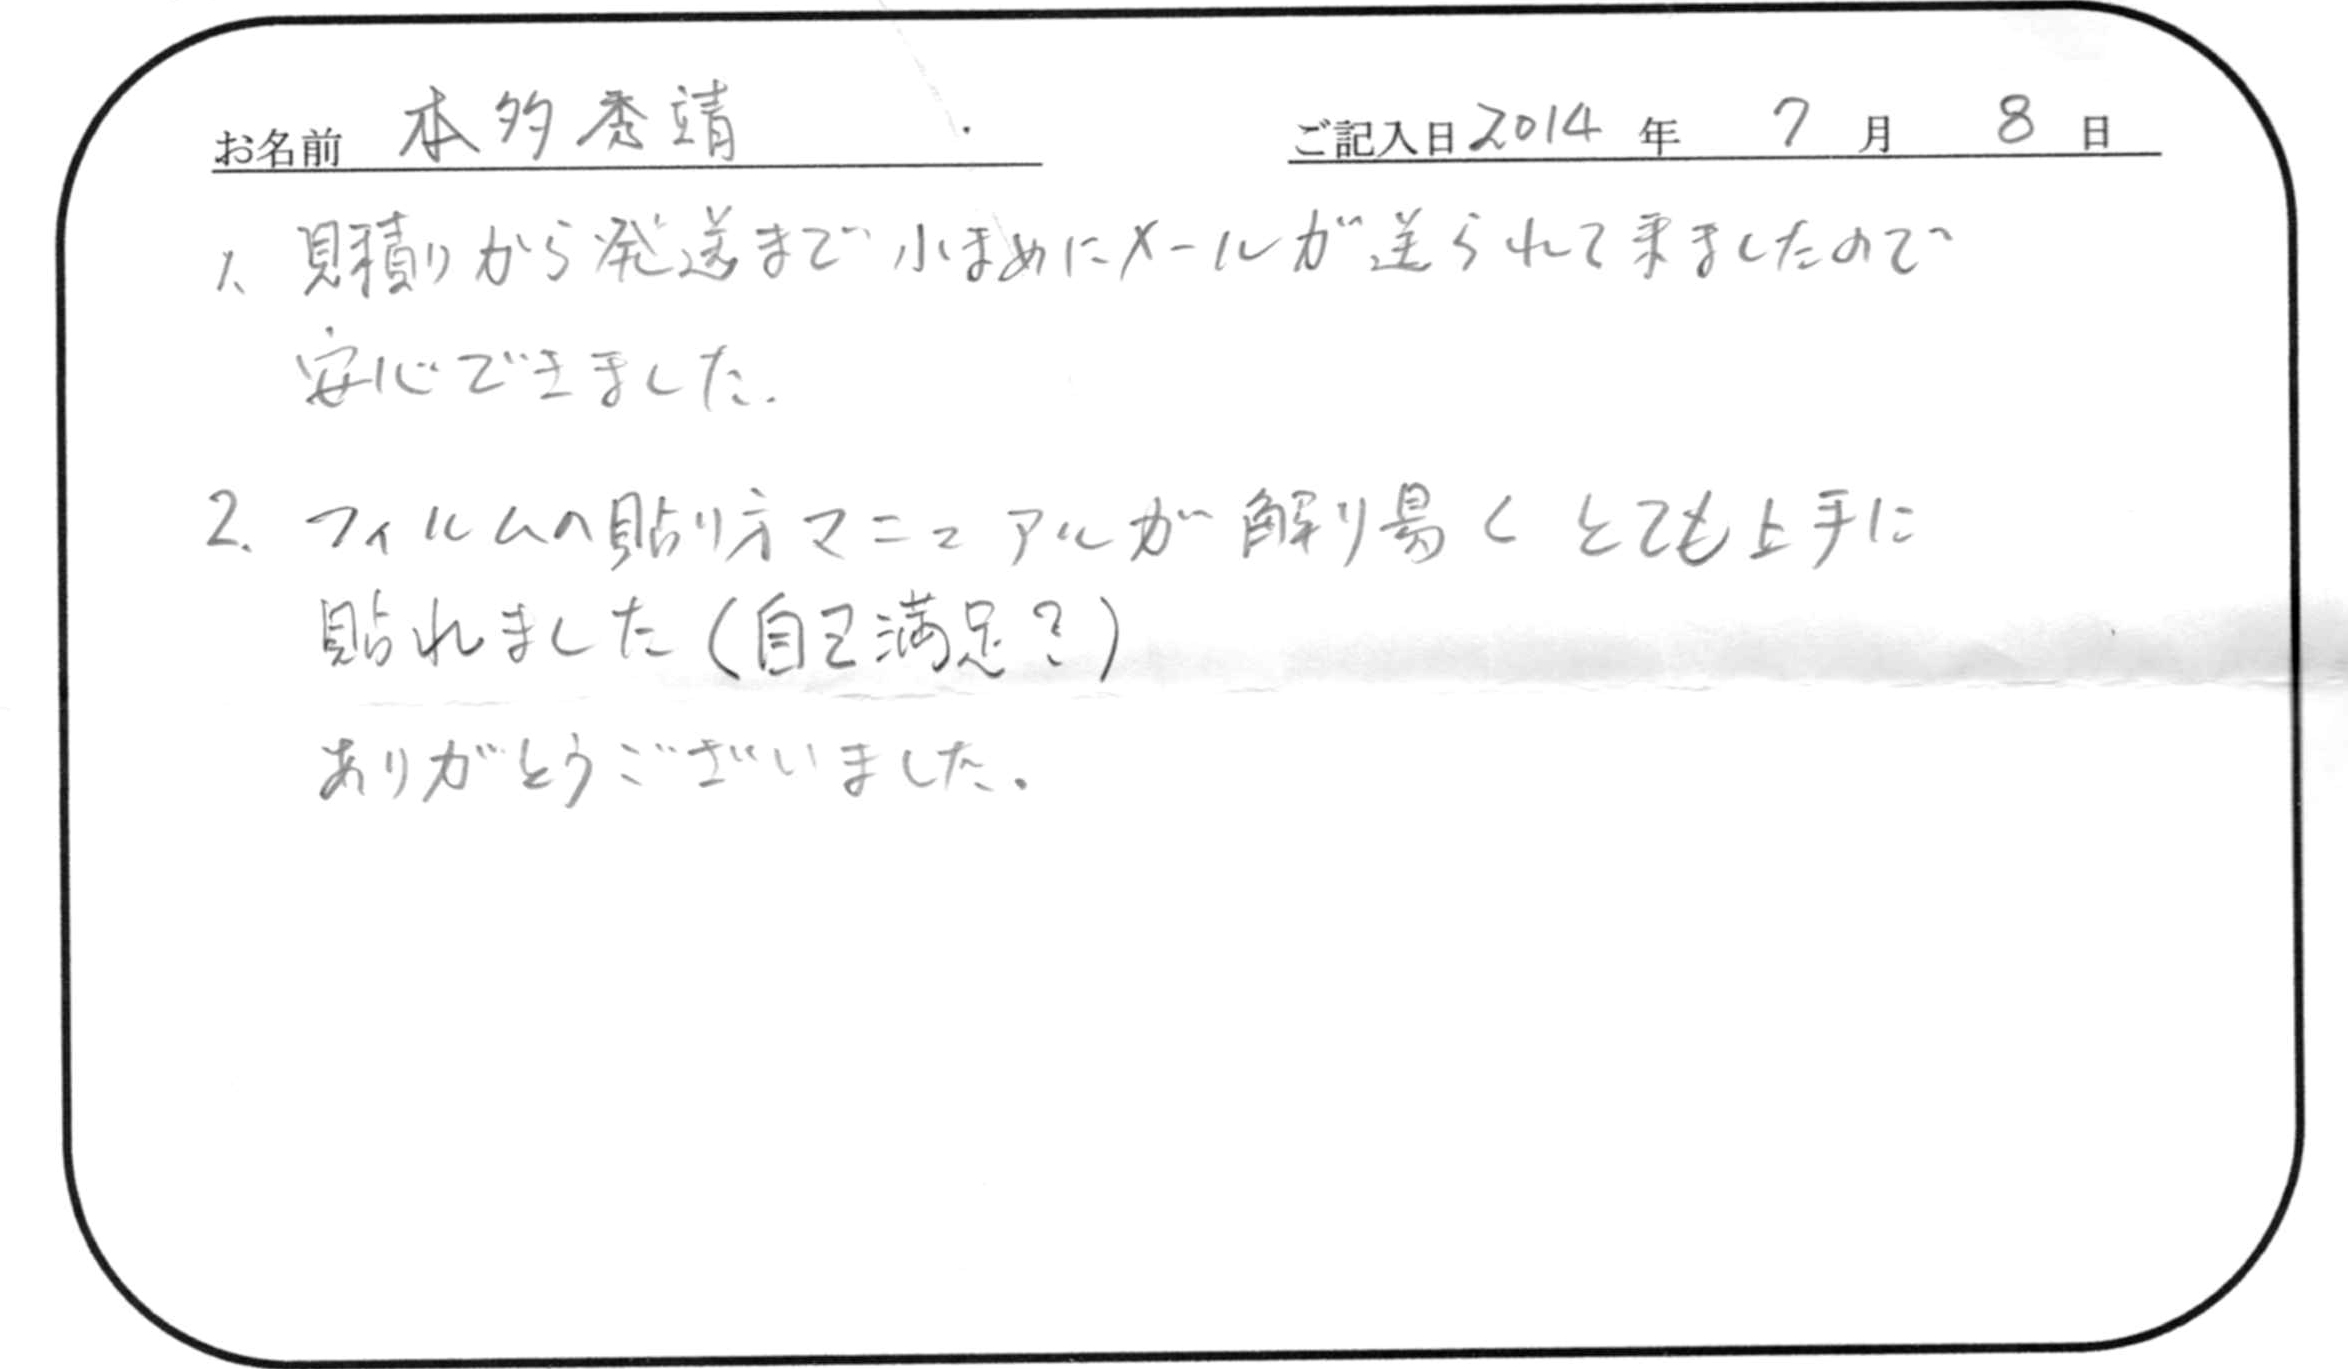 お名前 本多秀靖 ご記入日 2014 年 7 月 8 日
1、見積りから発送まで小まめにメールが送られて来ましたので
安心できました.
2. フィルムの貼り方マニュアルが解り易く とても上手に
貼れました(自己満足?)
ありがとうございました.